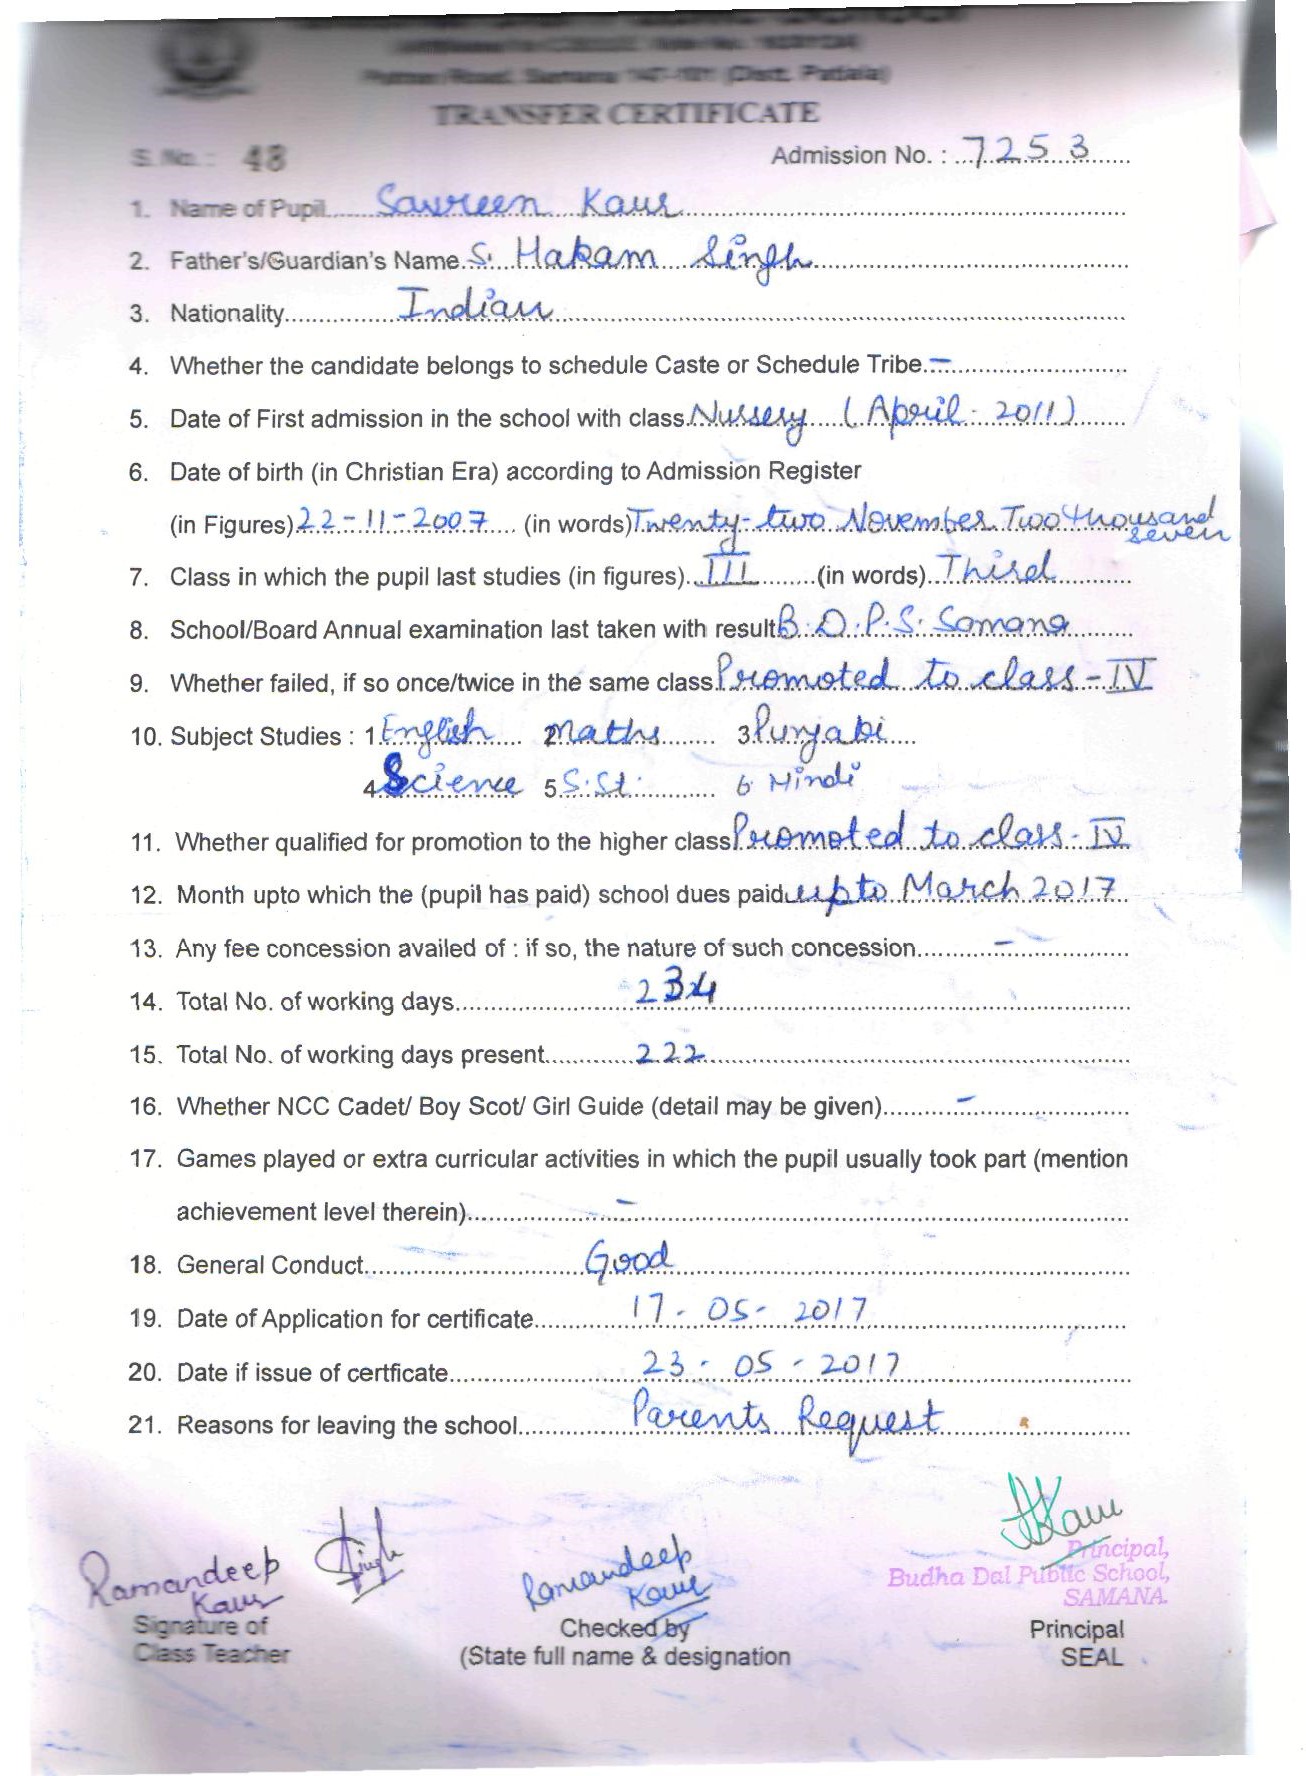 TRANSFER CERTIFICATE
S. No. : 48 Admission No. : 7253
1. Name of Pupil Savreen Kaur
2. Father's/Guardian's Name S. Hakam Singh
3. Nationality Indian
4. Whether the candidate belongs to schedule Caste or Schedule Tribe –
5. Date of First admission in the school with class Nursery (April - 2011)
6. Date of birth (in Christian Era) according to Admission Register
(in Figures) 22-11-2007 (in words) Twenty-two November Two thousand
seven
7. Class in which the pupil last studies (in figures) III (in words) Third
8. School/Board Annual examination last taken with result B.D.P.S. Samana
9. Whether failed, if so once/twice in the same class Promoted to class-IV
10. Subject Studies : 1 English 2 Maths 3 Punjabi
4 Science 5 S.St. 6 Hindi
11. Whether qualified for promotion to the higher class Promoted to class-IV
12. Month upto which the (pupil has paid) school dues paid upto March 2017
13. Any fee concession availed of : if so, the nature of such concession –
14. Total No. of working days 234
15. Total No. of working days present 222
16. Whether NCC Cadet/ Boy Scot/ Girl Guide (detail may be given) –
17. Games played or extra curricular activities in which the pupil usually took part (mention
achievement level therein) –
18. General Conduct Good
19. Date of Application for certificate 17-05-2017
20. Date if issue of certficate 23-05-2017
21. Reasons for leaving the school Parents Request
Ramandeep Kaur Singh
Ramandeep Kaur
Kaur
Principal,
Budha Dal Public School,
SAMANA.
Signature of
Class Teacher
Checked by
(State full name & designation
Principal
SEAL